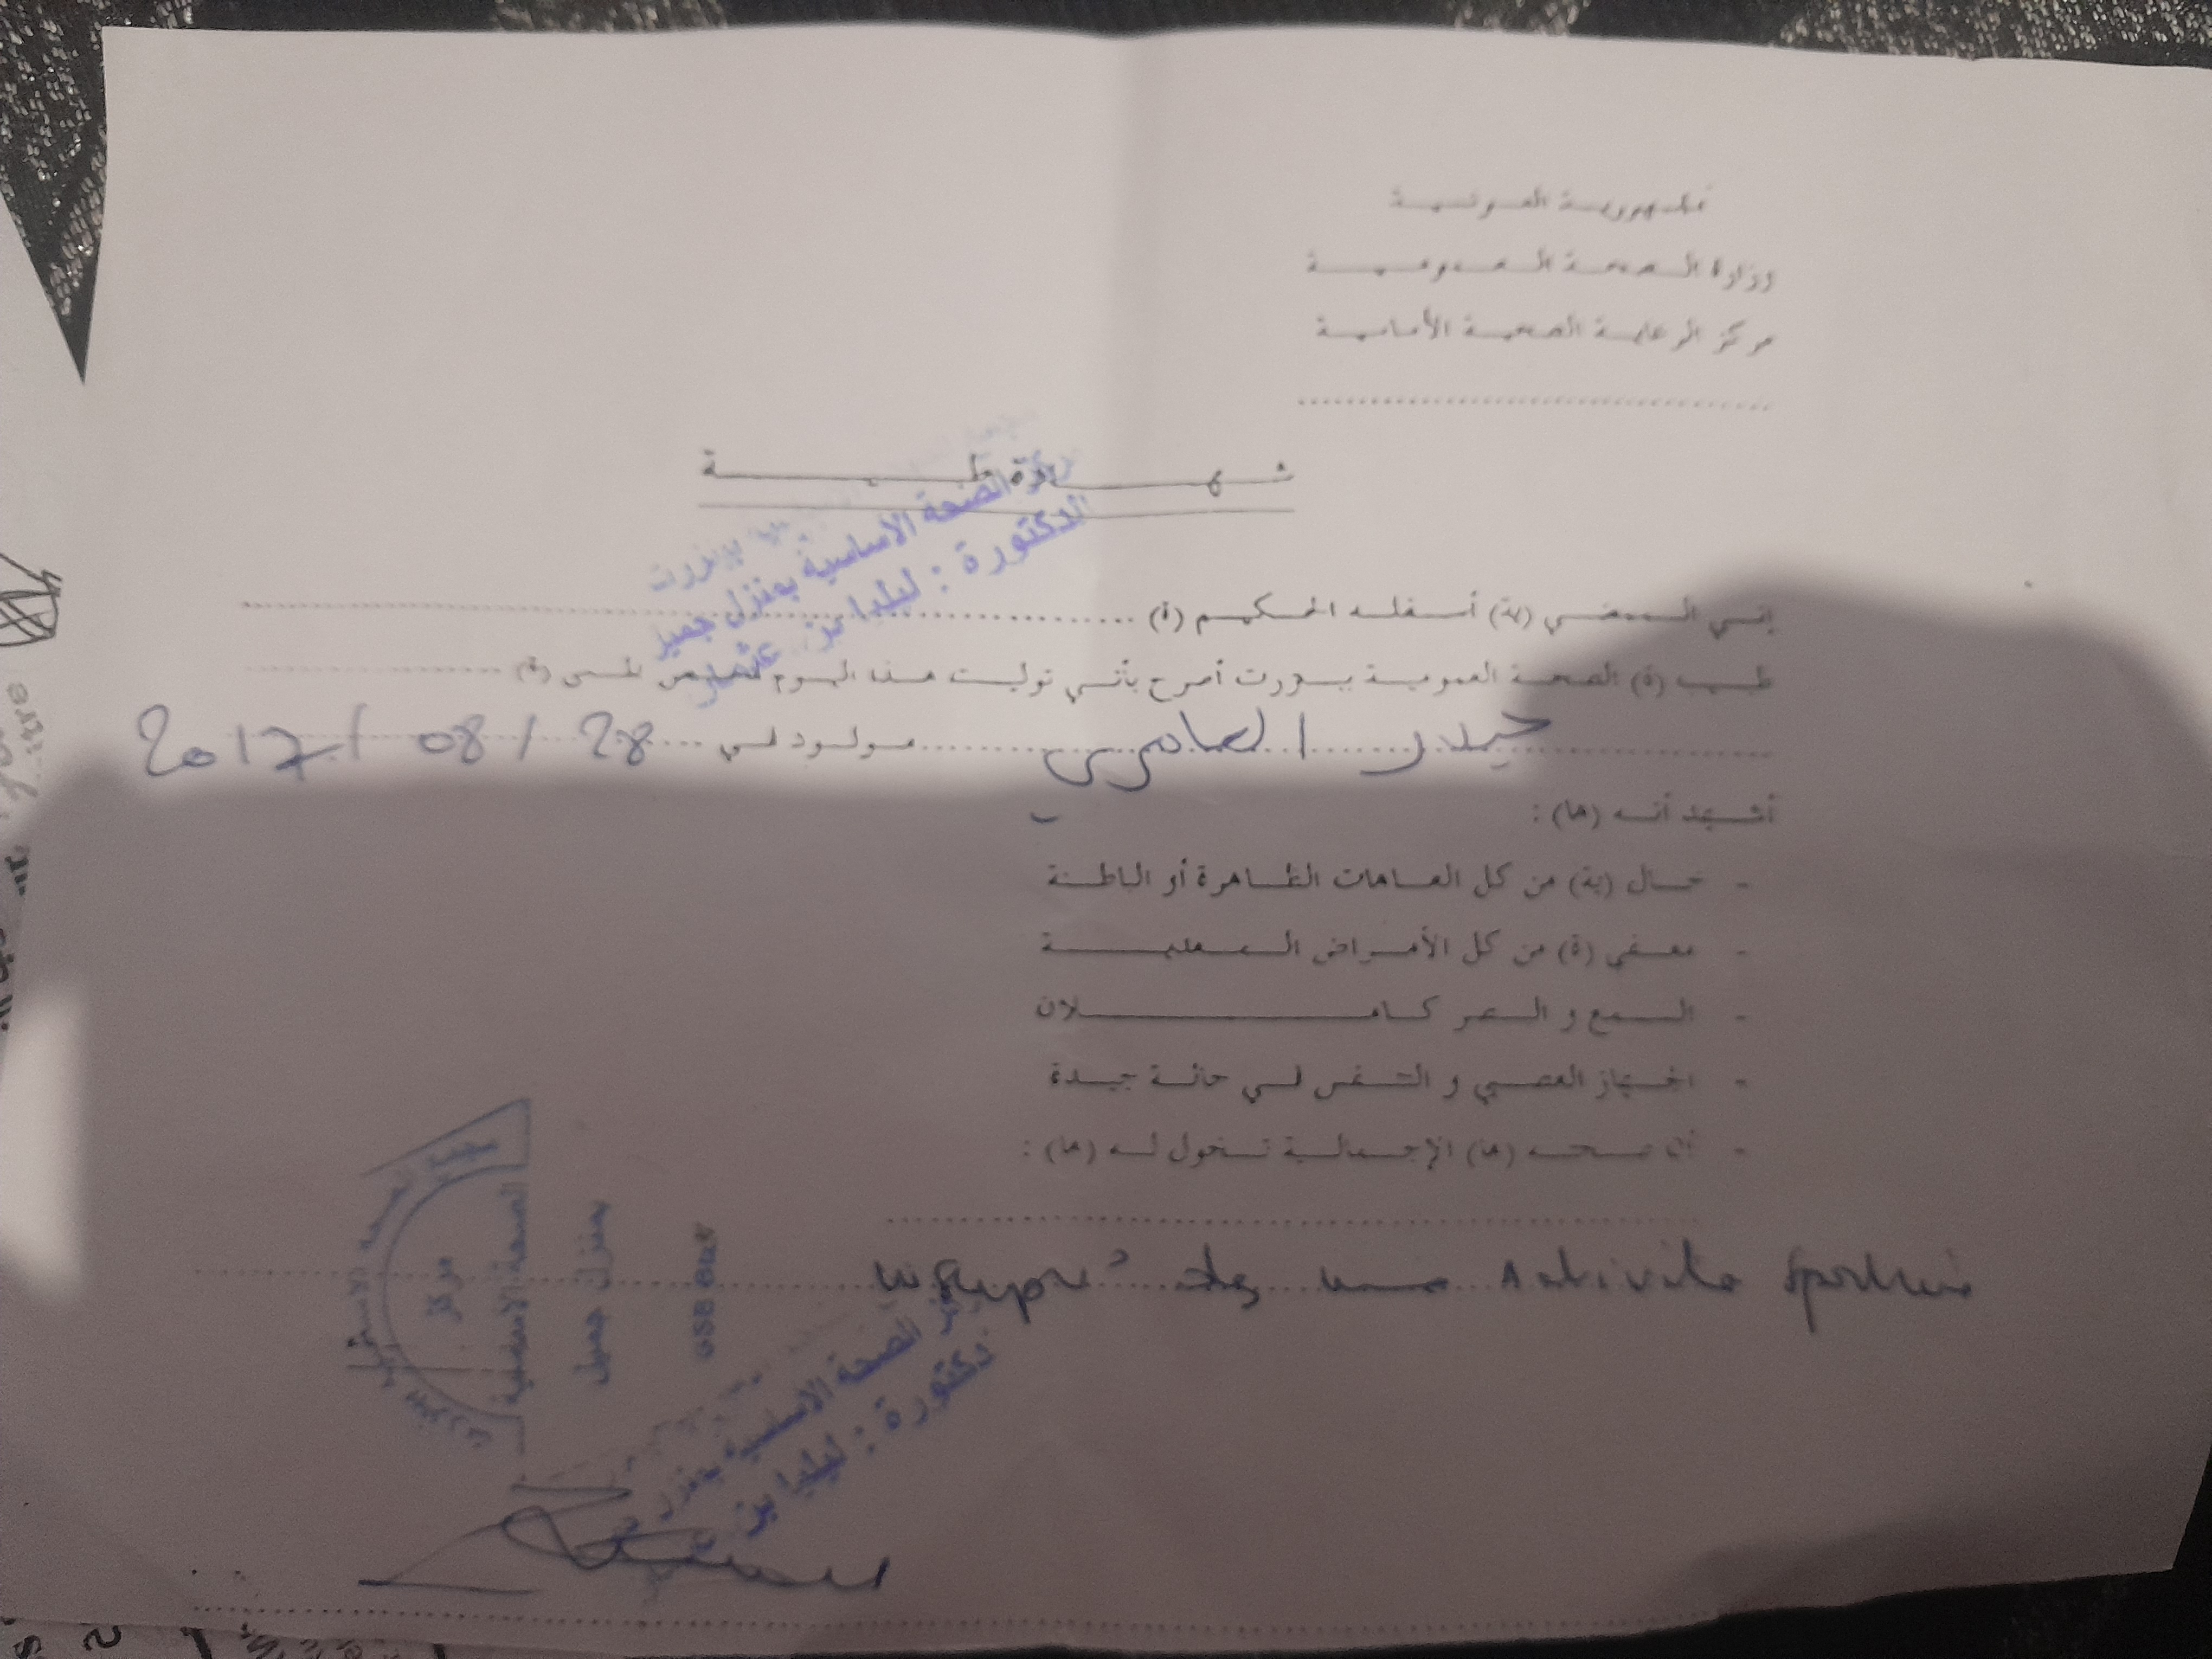 الجمهورية التونسية
وزارة الصحة العمومية
مركز الرعاية الصحية الأساسية
شهادة طبية
الصحة الأساسية بمنزل جميل
الدكتورة : ليليا بن
إني الممضي (ية) أسفله الحكيم (ة)
طبيب (ة) الصحة العمومية ببنزرت أصرح بأنني توليت هذا اليوم فحص (ة)
حيدر العامري مولود في 28 / 08 / 2017
أشهد أنه (ها) :
- خال (ية) من كل العاهات الظاهرة أو الباطنة
- معفى (ة) من كل الأمراض المعدية
- السمع و البصر كاملان
- الجهاز العصبي و التنفس في حالة جيدة
- أن صحته (ها) الإجمالية تخول له (ها) :
une Activité Sportive
مركز
الصحة الأساسية
بمنزل جميل
الصحة الأساسية بمنزل
دكتورة : ليليا بن